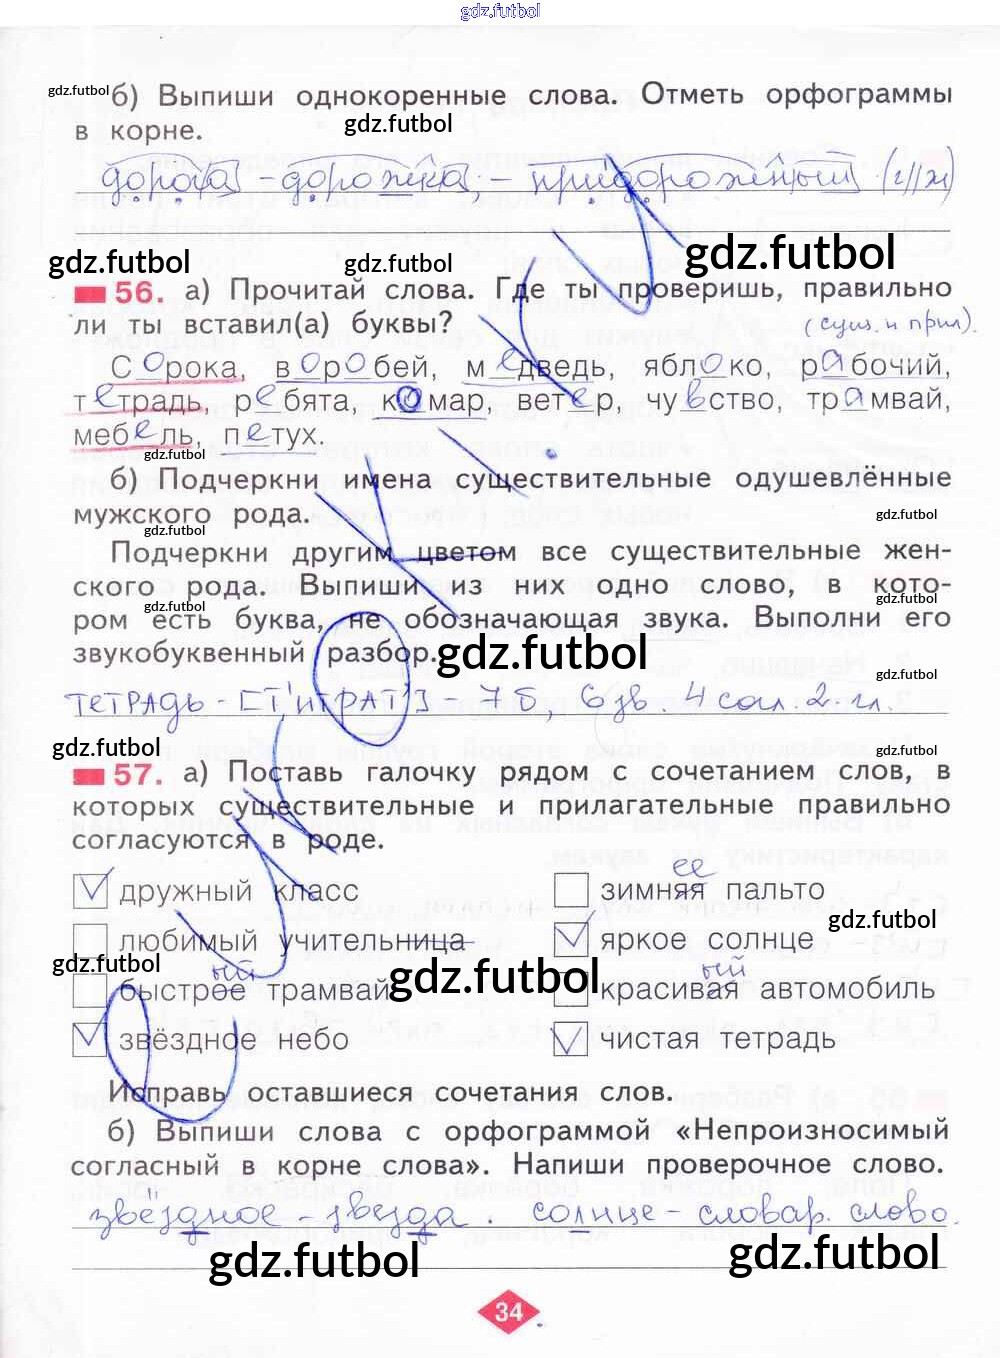 gdz.futbol
gdz.futbol
б) Выпиши однокоренные слова. Отметь орфограммы
в корне.
gdz.futbol
дорога - дорожка - придорожный (г//ж)
gdz.futbol
gdz.futbol
gdz.futbol
56. а) Прочитай слова. Где ты проверишь, правильно
ли ты вставил(а) буквы?
(сущ. и прил.)
Сорока, воробей, медведь, яблоко, рабочий,
тетрадь, ребята, комар, ветер, чувство, трамвай,
мебель, петух.
gdz.futbol
б) Подчеркни имена существительные одушевлённые
мужского рода.
gdz.futbol
gdz.futbol
Подчеркни другим цветом все существительные жен-
ского рода. Выпиши из них одно слово, в кото-
gdz.futbol
gdz.futbol
ром есть буква, не обозначающая звука. Выполни его
звукобуквенный разбор.
gdz.futbol
gdz.futbol
тетрадь - [т'итрат'] - 7 б, 6 зв. 4 согл. 2 гл.
gdz.futbol
gdz.futbol
57. а) Поставь галочку рядом с сочетанием слов, в
которых существительные и прилагательные правильно
согласуются в роде.
ее
дружный класс зимняя пальто
gdz.futbol
любимый учительница яркое солнце
gdz.futbol
ый ый
gdz.futbol
быстрое трамвай красивая автомобиль
звёздное небо чистая тетрадь
Исправь оставшиеся сочетания слов.
б) Выпиши слова с орфограммой «Непроизносимый
согласный в корне слова». Напиши проверочное слово.
звёздное - звезда. солнце - словар. слово.
gdz.futbol
gdz.futbol
34